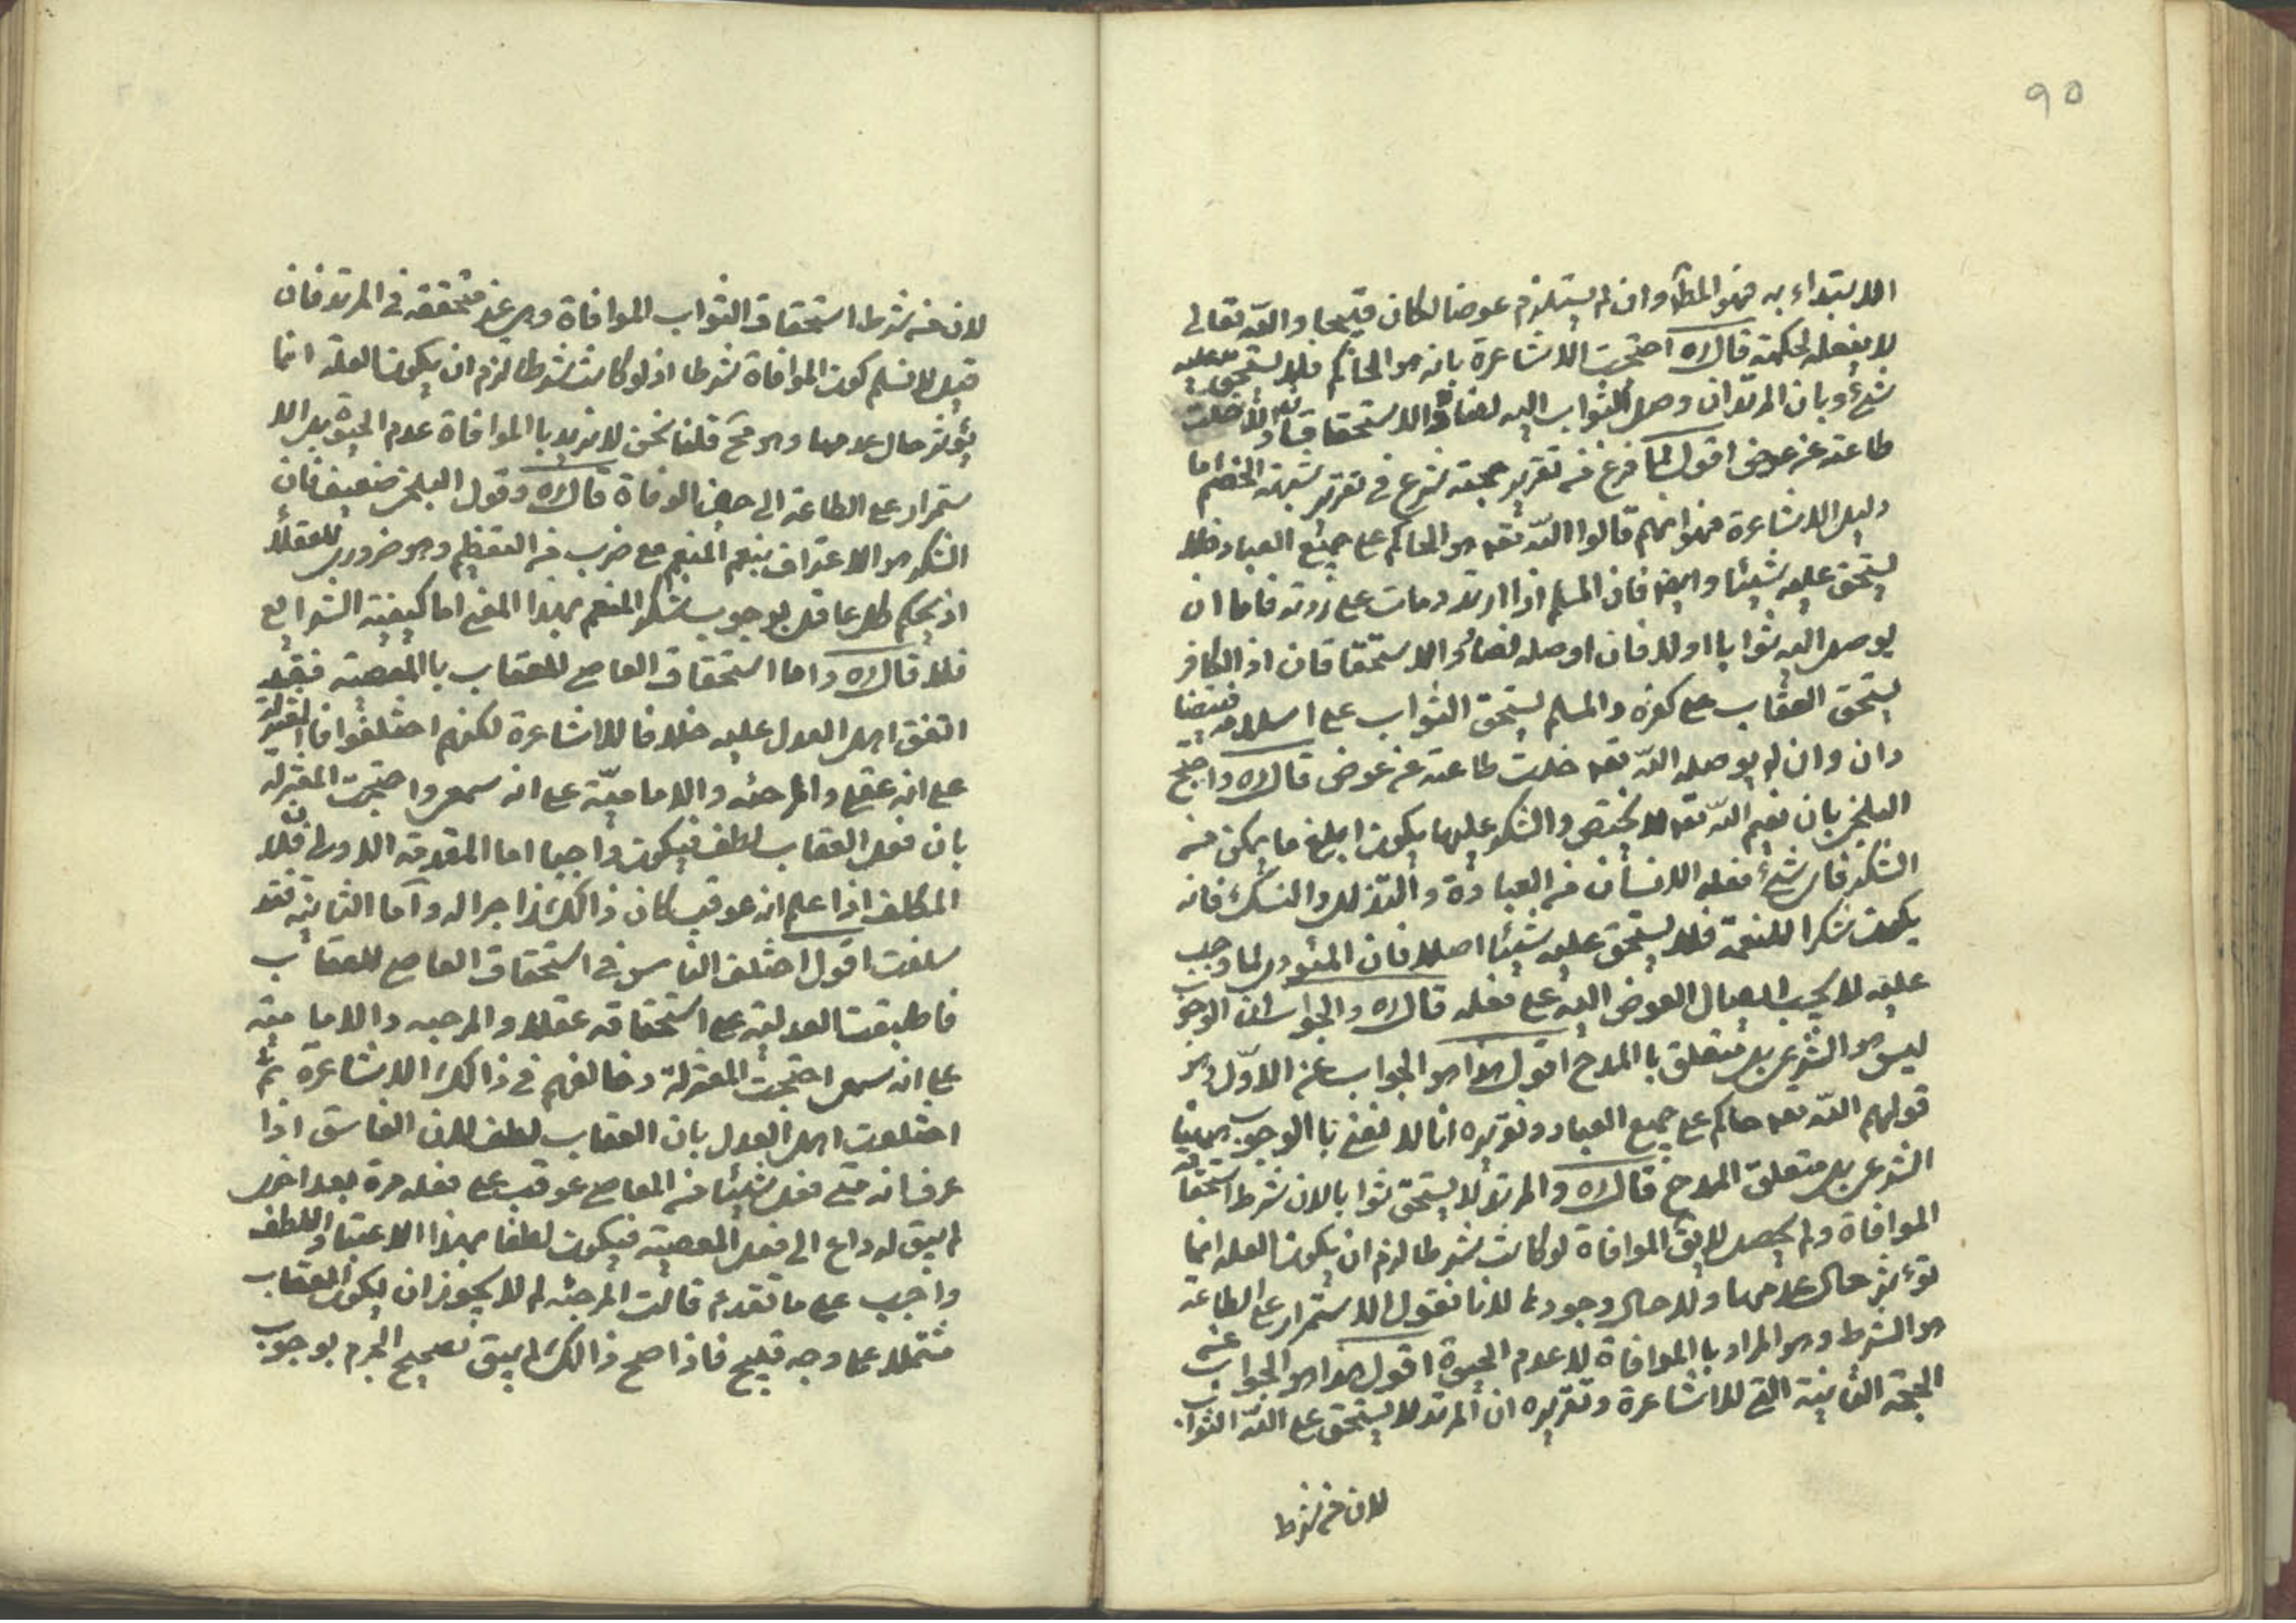 ٩٥
الابتداء به فهو المط وان لم يستلزم عوضا لكان قبيحا والله تعالى
لا يفعله لحكمته قال ره احتجت الاشاعرة بانه هو الحاكم فلا يستحق عليه
شئ وبان المرتد ان وصل الثواب اليه لضاد الاستحقاقان والا خلت
طاعته عن عوض اقول لما فرغ من تقرير حجته شرع في تقرير شبهة الخصم اما
دليل الاشاعرة فهو انهم قالوا الله تعه هو الحاكم على جميع العباد فلا
يستحق عليه شيئا وايضا فان المسلم اذا ارتد ومات على ردته فاما ان
يوصل اليه ثوابا اولا فان اوصله لضاد الاستحقاقان اذ الكافر
يستحق العقاب على كفره والمسلم يستحق الثواب على اسلامه فيتضا
دان وان لم يوصله الله تعه خلت طاعته عن عوض قال ره واحتج
البلخي بان نعم الله تعه لا يختص والشكر عليها يكون ابلغ ما يمكن من
الشكر فاى شئ فعله الانسان من العبادة والتذلل والنسك فانه
يكون شكرا للنعمة فلا يستحق عليه شيئا اصلا فان المئودى لما وجب
عليه لا يجب ايصال العوض اليه على فعله قال ره والجواب ان الوجوب
ليس هو الشرعى بل متعلق با المدح اقول هذا هو الجواب عن الاول وهو
قولهم الله تعه حاكم على جميع العباد وتقريره انا لا نعنى با الوجوب ههنا
الشرعى بل متعلق المدح قال ره والمرتد لا يستحق ثوابا لان شرط استحقاقه
الموافاة ولم يحصل لا يق الموافاة لو كانت شرطا لزم ان يكون العله انما
تؤثر حال عدمها ولا حال وجودها لانا نقول الاستمرار على الطاعة
هو الشرط وهو المراد با الموافاة لا عدم الحيوة اقول هذا هو الجواب عن
الحجة الثانية التى للاشاعرة وتقريره ان المرتد لا يستحق على الله الثواب
لان من شرط
لان من شرط استحقاق الثواب الموافاة وهى غير متحققه فى المرتد فان
قيل لا نسلم كون الموافاة شرطا اذ لو كانت شرطا لزم ان يكون العلة انما
يؤثر حال عدمها وهو مح قلنا نحن لا نريد با الموافاة عدم الحيوة بل الا
ستمرار على الطاعة الى حين الوفاة قال ره وقول البلخى ضعيف فان
الشكر هو الاعتراف بنعم المنعم مع ضرب من التعظيم وهو ضرورى للعقلاء
اذ يحكم كل عاقل بوجوب شكر المنعم بهذا المعنى اما كيفية الشرايع
فلا قال ره واما استحقاق العاصى للعقاب با المعصية فقد
اتفق اهل العدل عليه خلافا للاشاعرة لكنهم اختلفوا فا المعتزلة
على انه عقلى والمرجئه والامامية على انه سمعى واحتجت المعتزلة
بان فعل العقاب لطف فيكون واجبا اما المقدمة الاولى فلان
المكلف اذا علم انه عوقب كان ذالك زاجرا له واما الثانية فقد
سلفت اقول اختلف الناس فى استحقاق العاصى للعقاب
فاطبقت العدلية على استحقاقه عقلا والمرجيه والامامية
على انه سمعى احتجت المعتزلة وخالفهم فى ذالك الاشاعرة ثم
اختلفت اهل العدل بان العقاب لطف لان الفاسق اذا
عرف انه متى فعل شيئا من المعاصى عوقب على فعله مرة بعد اخرى
لم يبق له داع الى فعل المعصية فيكون لطفا بهذا الاعتبار واللطف
واجب على ما تقدم قالت المرجئه لم لا يجوز ان يكون العقاب
مشتملا على وجه قبيح فاذا صح ذالك لم يبق تصحيح الجزم بوجوب